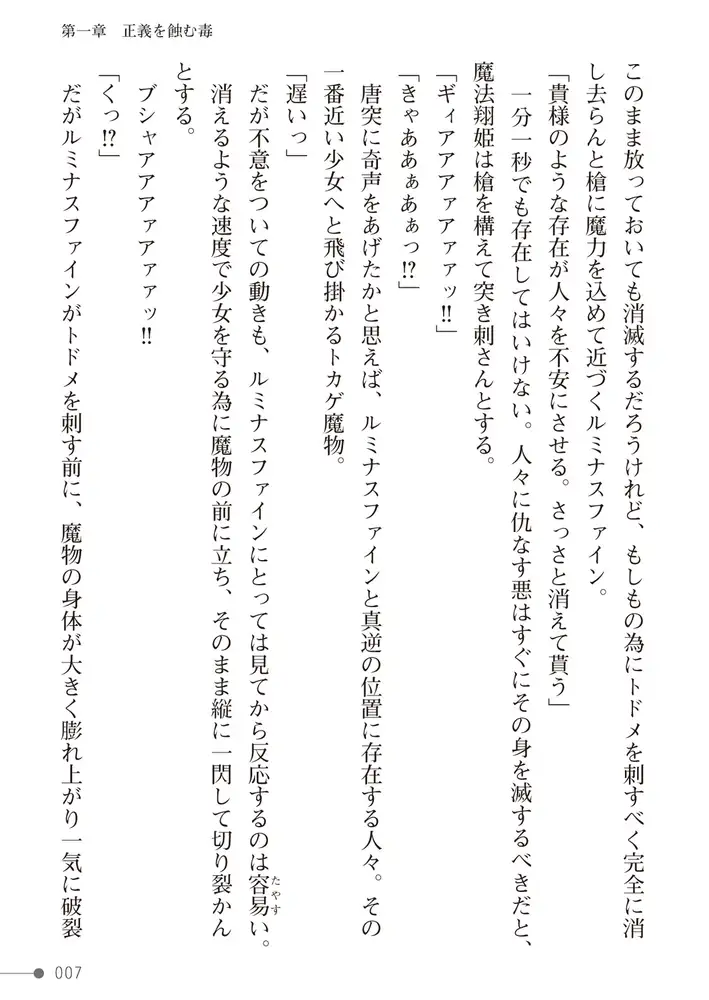 第一章　正義を蝕む毒
このまま放っておいても消滅するだろうけれど、もしもの為にトドメを刺すべく完全に消
し去らんと槍に魔力を込めて近づくルミナスファイン。
「貴様のような存在が人々を不安にさせる。さっさと消えて貰う」
一分一秒でも存在してはいけない。人々に仇なす悪はすぐにその身を滅するべきだと、
魔法翔姫は槍を構えて突き刺さんとする。
「ギィアアアァアァァッ‼」
「きゃああぁあぁっ⁉」
唐突に奇声をあげたかと思えば、ルミナスファインと真逆の位置に存在する人々。その
一番近い少女へと飛び掛かるトカゲ魔物。
「遅いっ」
だが不意をついての動きも、ルミナスファインにとっては見てから反応するのは容易い。
たやす
消えるような速度で少女を守る為に魔物の前に立ち、そのまま縦に一閃して切り裂かん
とする。
ブシャアアアァアァァァッ‼
「くっ⁉」
だがルミナスファインがトドメを刺す前に、魔物の身体が大きく膨れ上がり一気に破裂
007